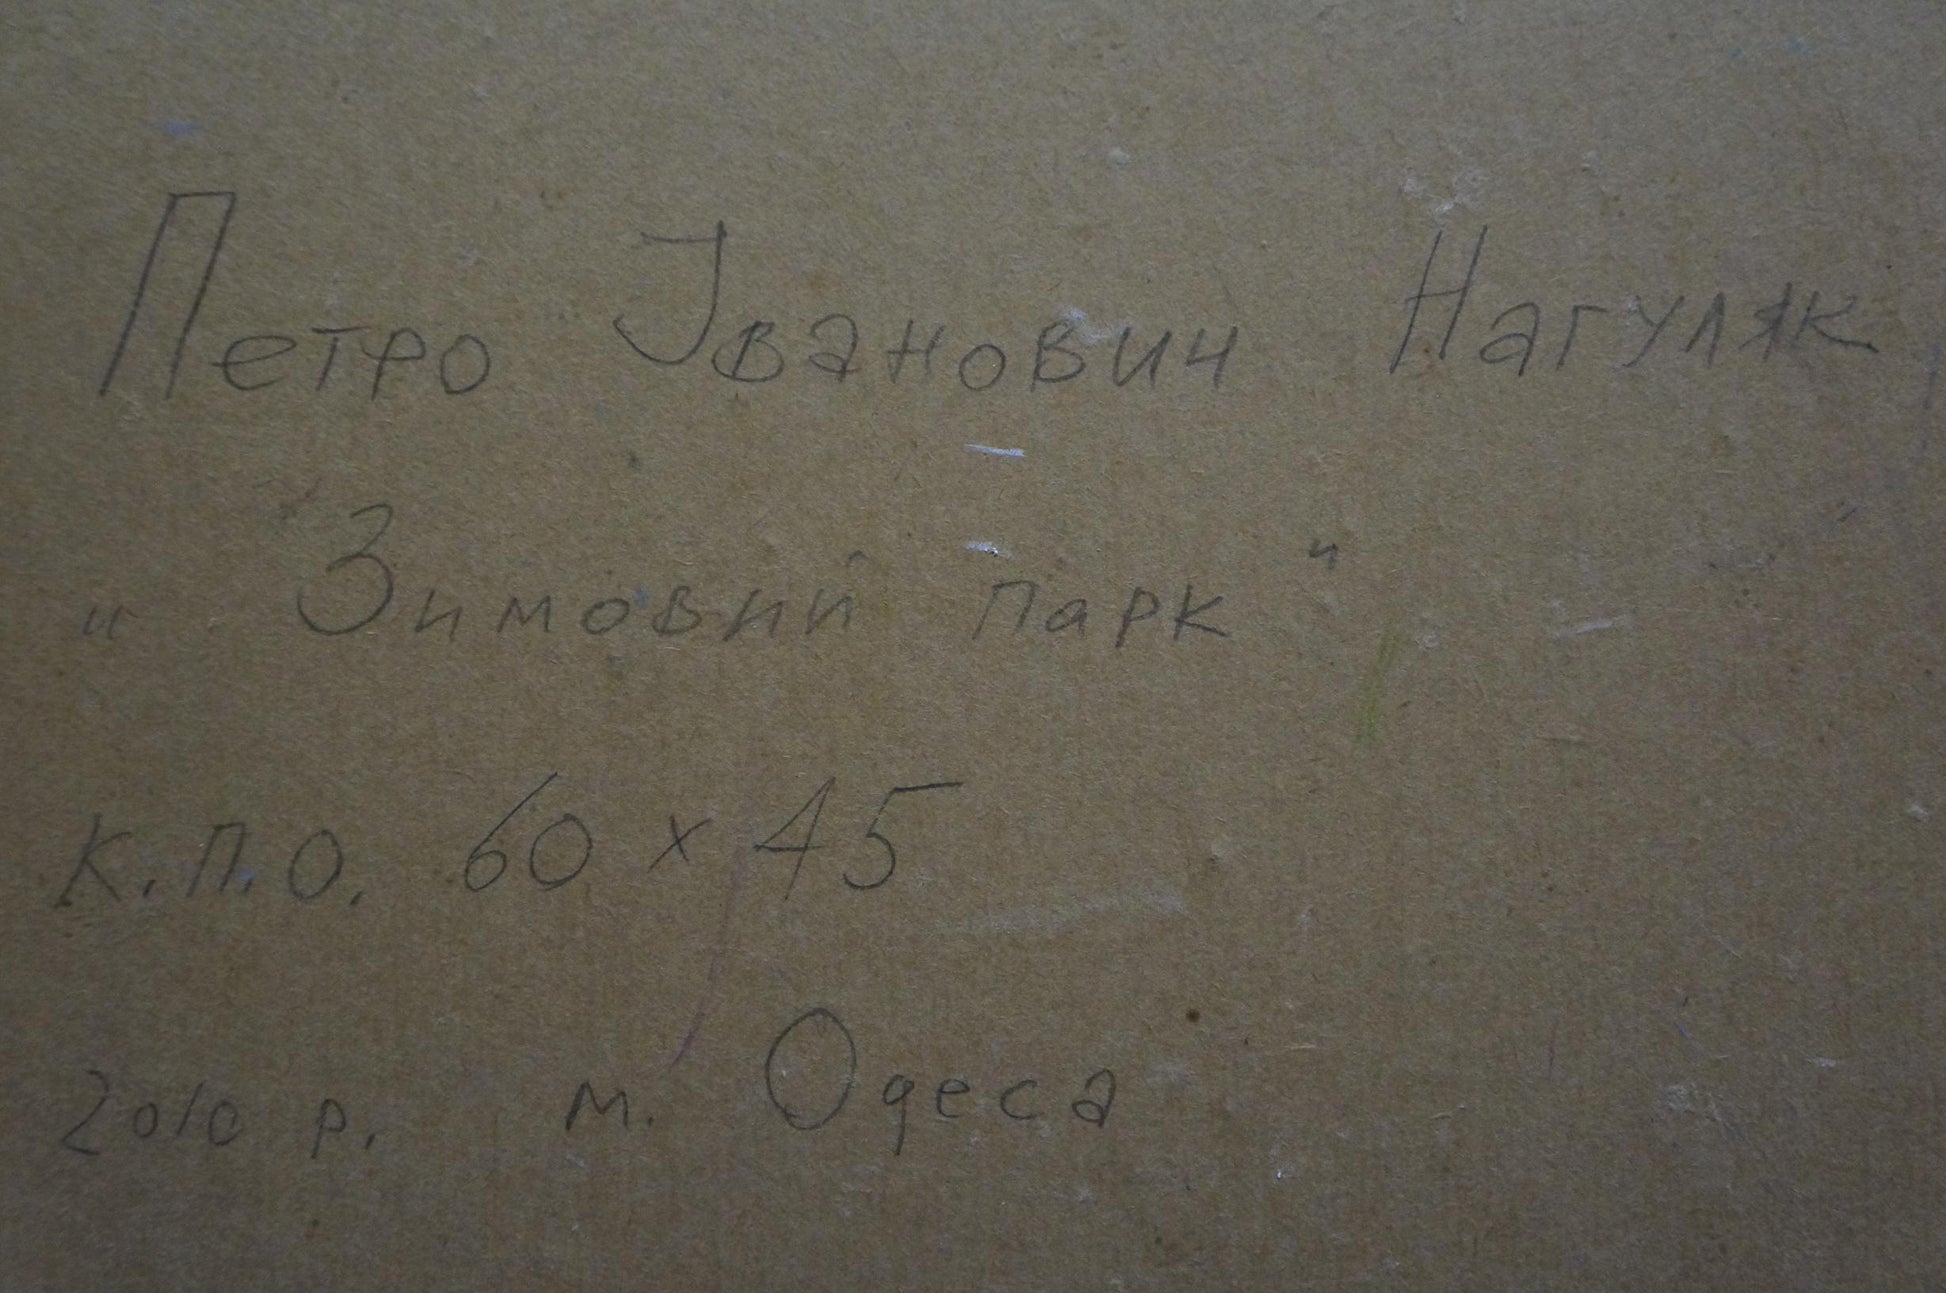 Петро Іванович Нагуляк
" Зимовий парк "
к.п.о. 60 х 45
2010 р. м. Одеса